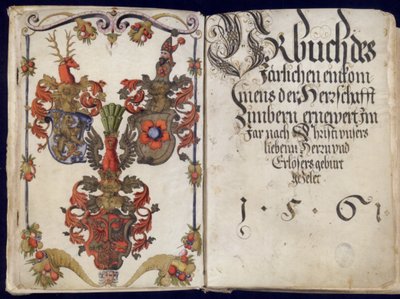 Urbuch des
Järlichen einkom
mens der Herrschafft
Zimbern ernewert Im
Jar nach Christi vnsers
liebenn Herrn vnd
Erlösers geburt
gezelet
1 · 5 · 6 1